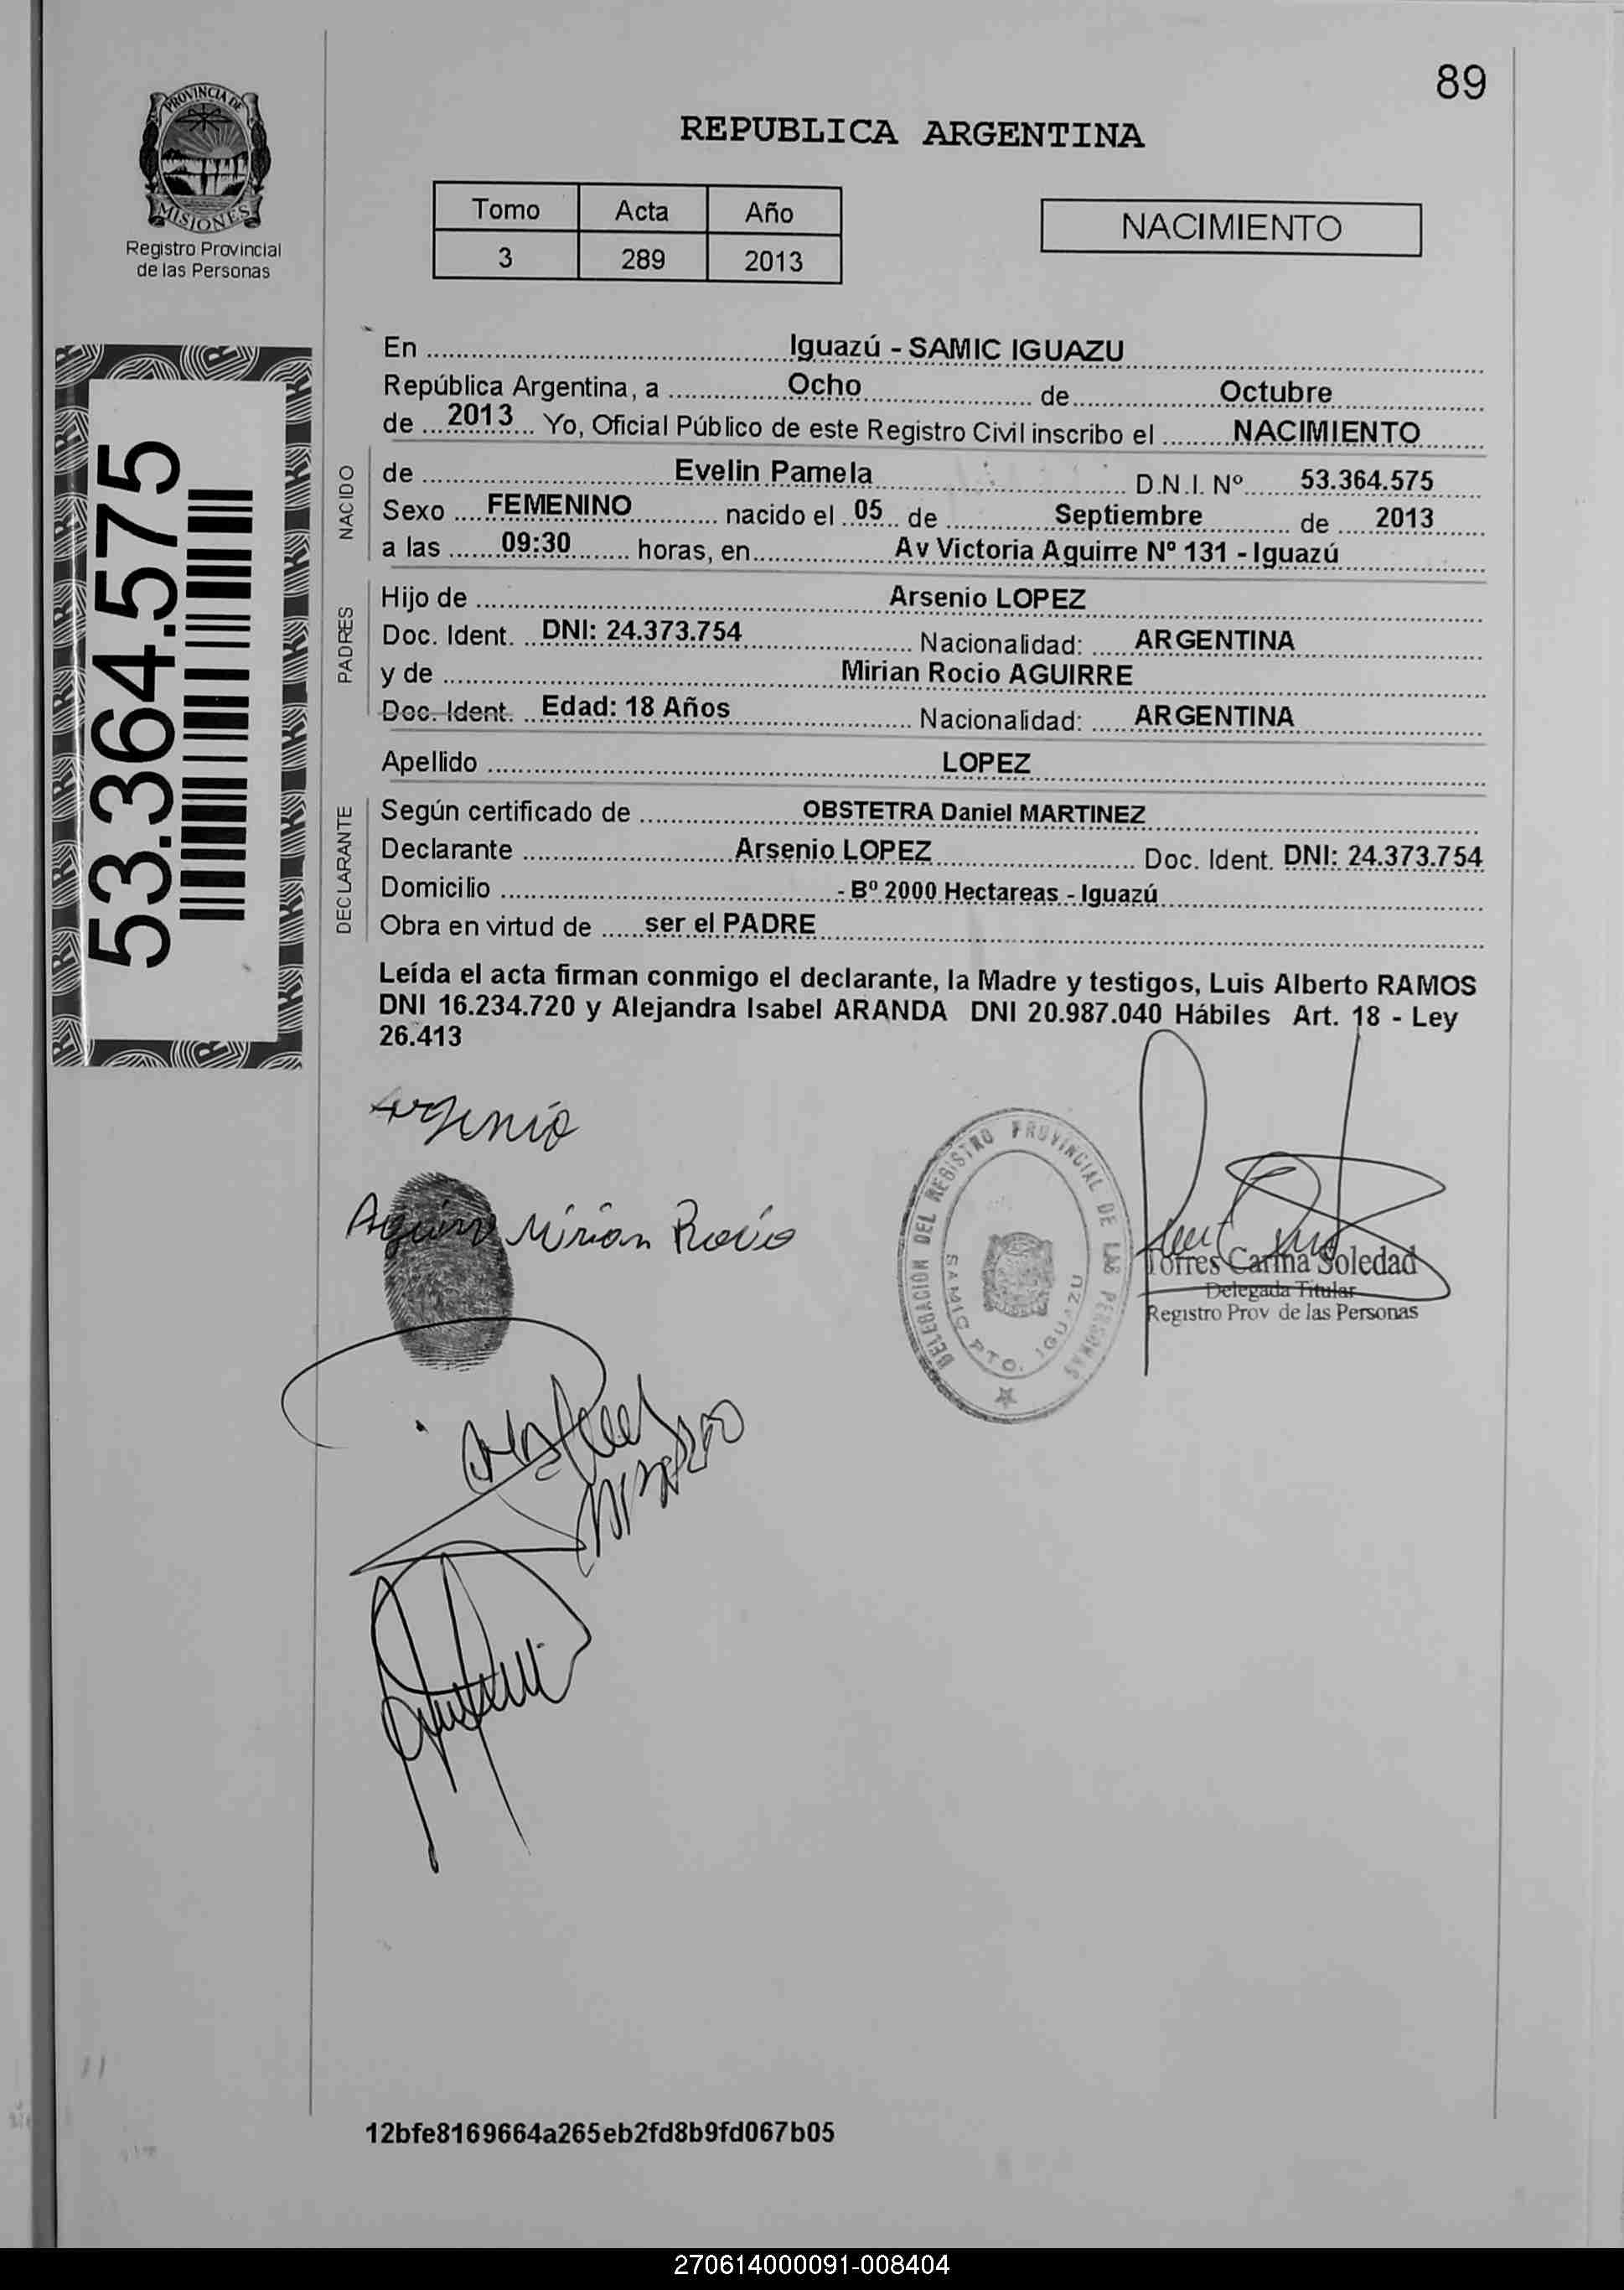 89
PROVINCIA DE
MISIONES
Registro Provincial
de las Personas
REPUBLICA ARGENTINA
Tomo Acta Año
3 289 2013
NACIMIENTO
53.364.575
En Iguazú - SAMIC IGUAZU
República Argentina, a Ocho de Octubre
de 2013 Yo, Oficial Público de este Registro Civil inscribo el NACIMIENTO
NACIDO
de Evelin Pamela D.N.I. Nº 53.364.575
Sexo FEMENINO nacido el 05 de Septiembre de 2013
a las 09:30 horas, en Av Victoria Aguirre Nº 131 - Iguazú
PADRES
Hijo de Arsenio LOPEZ
Doc. Ident. DNI: 24.373.754 Nacionalidad: ARGENTINA
y de Mirian Rocio AGUIRRE
Doc. Ident. Edad: 18 Años Nacionalidad: ARGENTINA
Apellido LOPEZ
DECLARANTE
Según certificado de OBSTETRA Daniel MARTINEZ
Declarante Arsenio LOPEZ Doc. Ident. DNI: 24.373.754
Domicilio - Bº 2000 Hectareas - Iguazú
Obra en virtud de ser el PADRE
Leída el acta firman conmigo el declarante, la Madre y testigos, Luis Alberto RAMOS
DNI 16.234.720 y Alejandra Isabel ARANDA DNI 20.987.040 Hábiles Art. 18 - Ley
26.413
Aguirre Mirian Rocio
DELEGACION DEL REGISTRO PROVINCIAL DE LAS PERSONAS
SAMIC PTO. IGUAZU
Torres Carina Soledad
Delegada Titular
Registro Prov de las Personas
12bfe8169664a265eb2fd8b9fd067b05
270614000091-008404